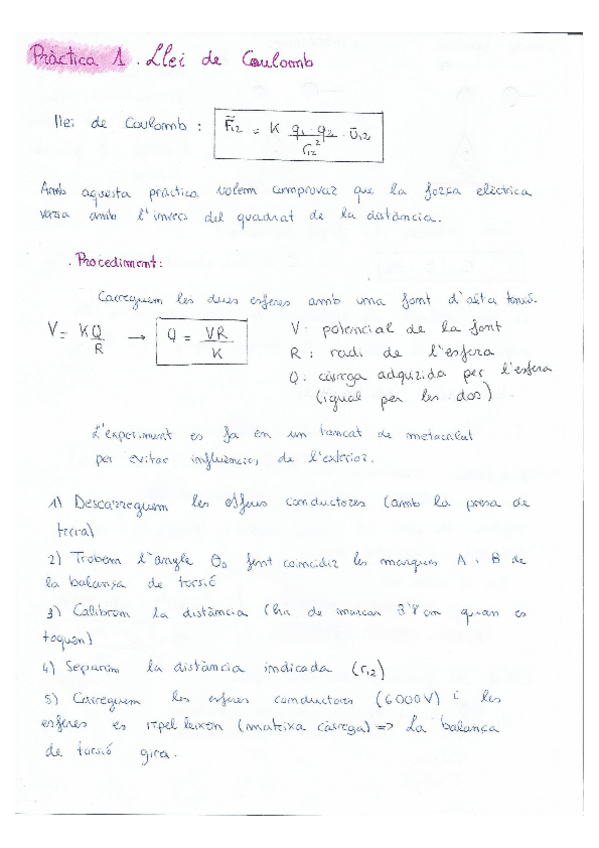 Pràctica 1. Llei de Coulomb
Llei de Coulomb: F̄₁₂ = K q₁·q₂/r₁₂² · ū₁₂
Amb aquesta pràctica volem comprovar que la força elèctrica
varia amb l'invers del quadrat de la distància.
. Procediment:
Carreguem les dues esferes amb una font d'alta tensió.
V = KQ/R → Q = VR/K
V: potencial de la font
R: radi de l'esfera
Q: càrrega adquirida per l'esfera
(igual per les dos)
L'experiment es fa en un tancat de metacrilat
per evitar influències de l'exterior.
1) Descarreguem les esferes conductores (amb la presa de
terra)
2) Trobem l'angle θ₀ fent coincidir les marques A i B de
la balança de torsió
3) Calibrem la distància (ha de marcar 3'8 cm quan es
toquen)
4) Separem la distància indicada (r₁₂)
5) Carreguem les esferes conductores (6000V) i les
esferes es repel·leixen (mateixa càrrega) => La balança
de torsió gira.